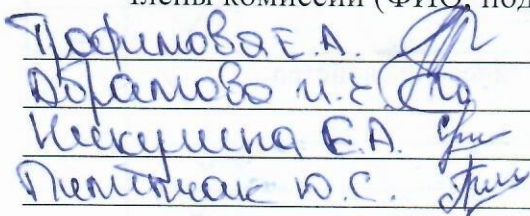 члены комиссии (ФИО, под
Трофимова Е.А.
Абрамова И.Е.
Никушина Е.А.
Ю.С.